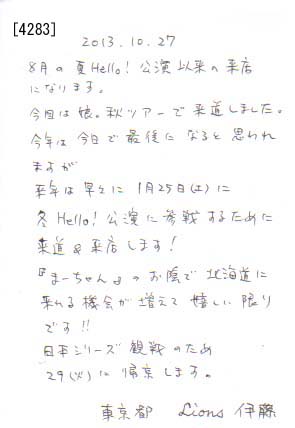 [4283]
2013.10.27
8月の夏Hello!公演以来の来店
になります。
今回は娘。秋ツアーで来道しました。
今年は今日で最後になると思われ
ますが
来年は早々に1月25日(土)に
冬Hello!公演に参戦するために
来道&来店します!
『まーちゃん』のお陰で北海道に
来れる機会が増えて嬉しい限り
です!!
日本シリーズ観戦のため
29(火)に帰京します。
東京都 Lions 伊藤